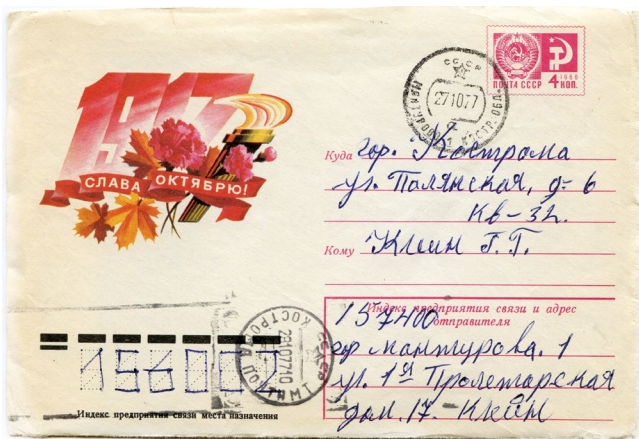 1917
СЛАВА ОКТЯБРЮ!
ПОЧТА СССР
1966
4 КОП.
СССР
271077
Куда гор. Кострома
ул. Полянская, д- 6
Кв-32.
Кому Клеин Г. Г.
Индекс предприятия связи и адрес
отправителя
157400
гор мантурова. 1
ул. 1я Пролетарская
дом. 17. Клеин
КОСТРОМА ПОЧТАМТ
СССР
28107710
156002
Индекс предприятия связи места назначения